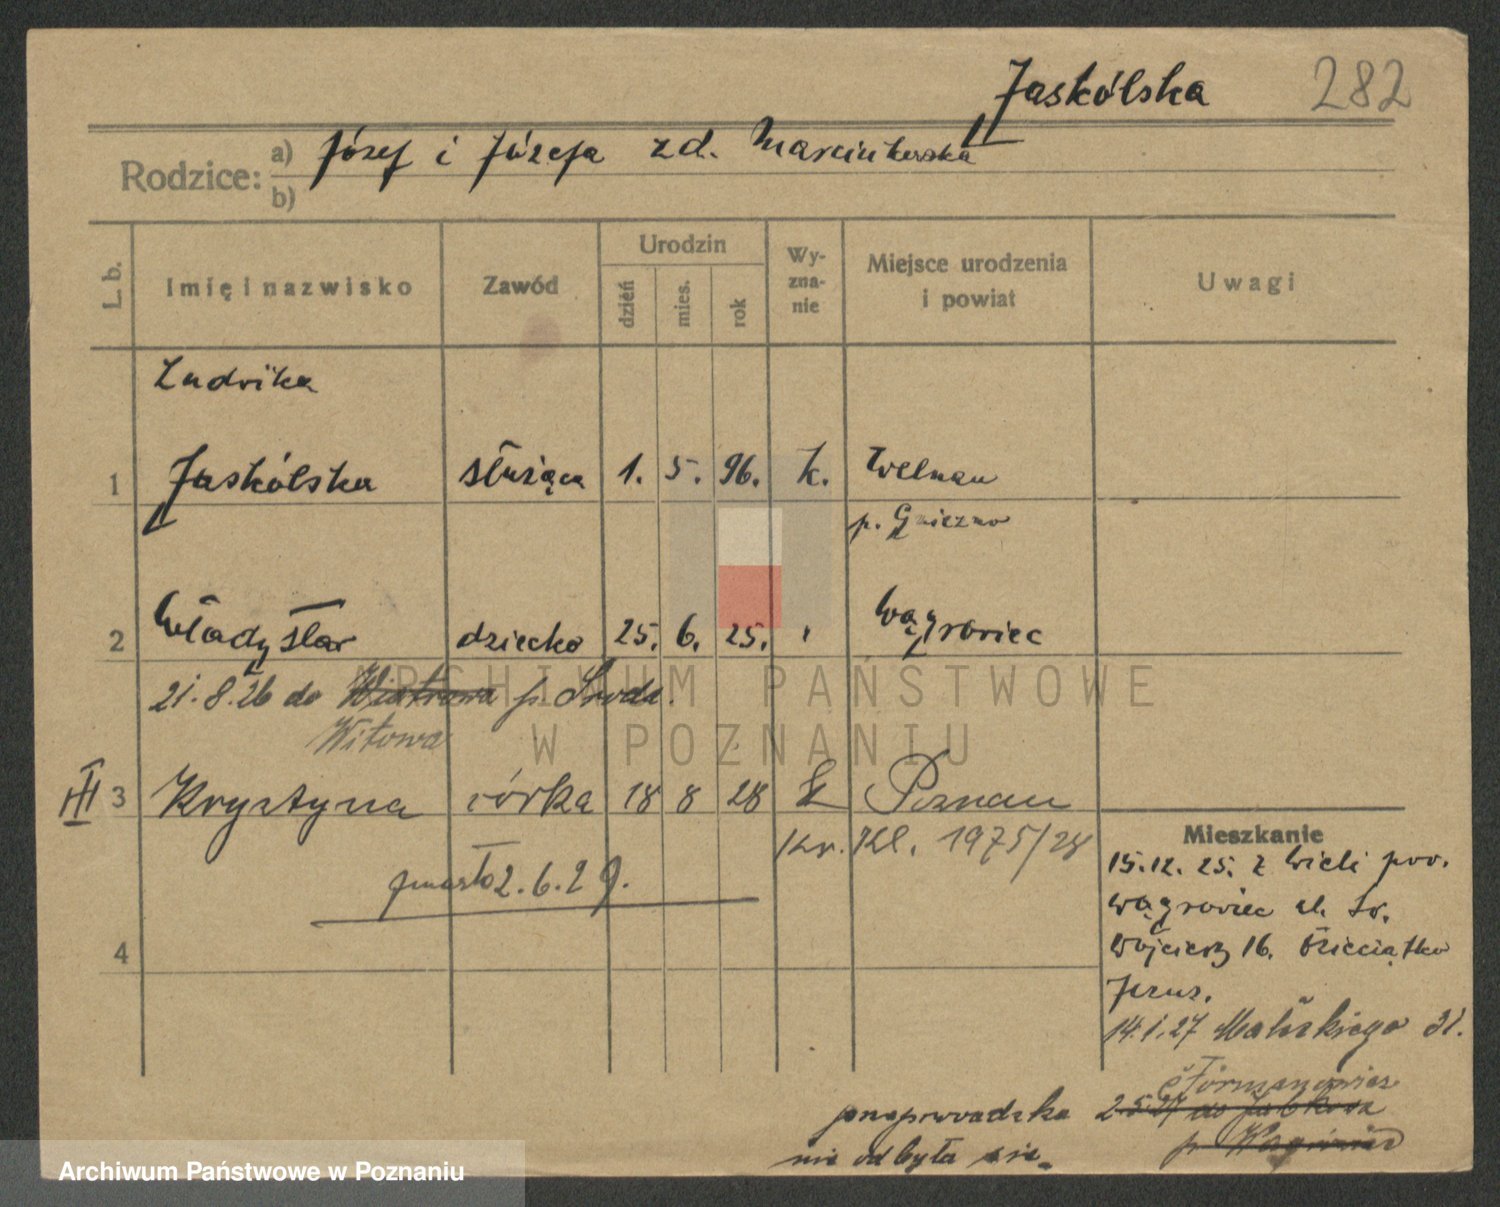 Jaskólska 282
Rodzice: a) Józef i Józefa zd. Marcinkowska
b)
L. b. Imię i nazwisko Zawód Urodzin dzień mies. rok Wy-zna-nie Miejsce urodzenia i powiat Uwagi
Ludwika
1 Jaskólska służąca 1. 5. 96. k. Welnau
p. Gniezno
2 Władysław dziecko 25. 6. 25. " Wągrowiec
21.8.26 do p. Środa.
Witowa
III 3 Krystyna córka 18 8 28 k Poznań
Kr. Kl. 1975/28
Mieszkanie
zmarła 2.6.29.
15.12.25. z Wieli pow.
Wągrowiec ul. św.
4 Wojciech 16. Dzieciątko
Jezus.
14.1.27 Malińskiego 31.
2.5.27 do
przeprowadzka
nie odbyła się.
ARCHIWUM PAŃSTWOWE
W POZNANIU
Archiwum Państwowe w Poznaniu